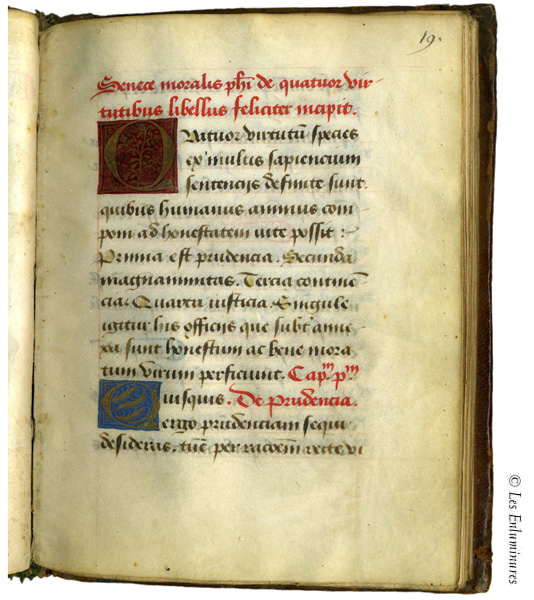 19.
Senece moralis phi de quatuor vir-
tutibus libellus feliciter incipit.
Quatuor virtutū species
ex multis sapiencium
sentencijs definite sunt.
quibus humanus animus com
poni ad honestatem uite possit :
Prima est prudencia. Secunda
magnanimitas. Tercia continē
cia. Quarta iusticia. Singule
igitur his officijs que subt' anne
xa sunt honestum ac bene mora
tum virum perficiunt. Capm pm
Quisquis. De Prudencia.
ergo prudenciam sequi
desideras. tūc per racoēm recte vi
© Les Enluminures